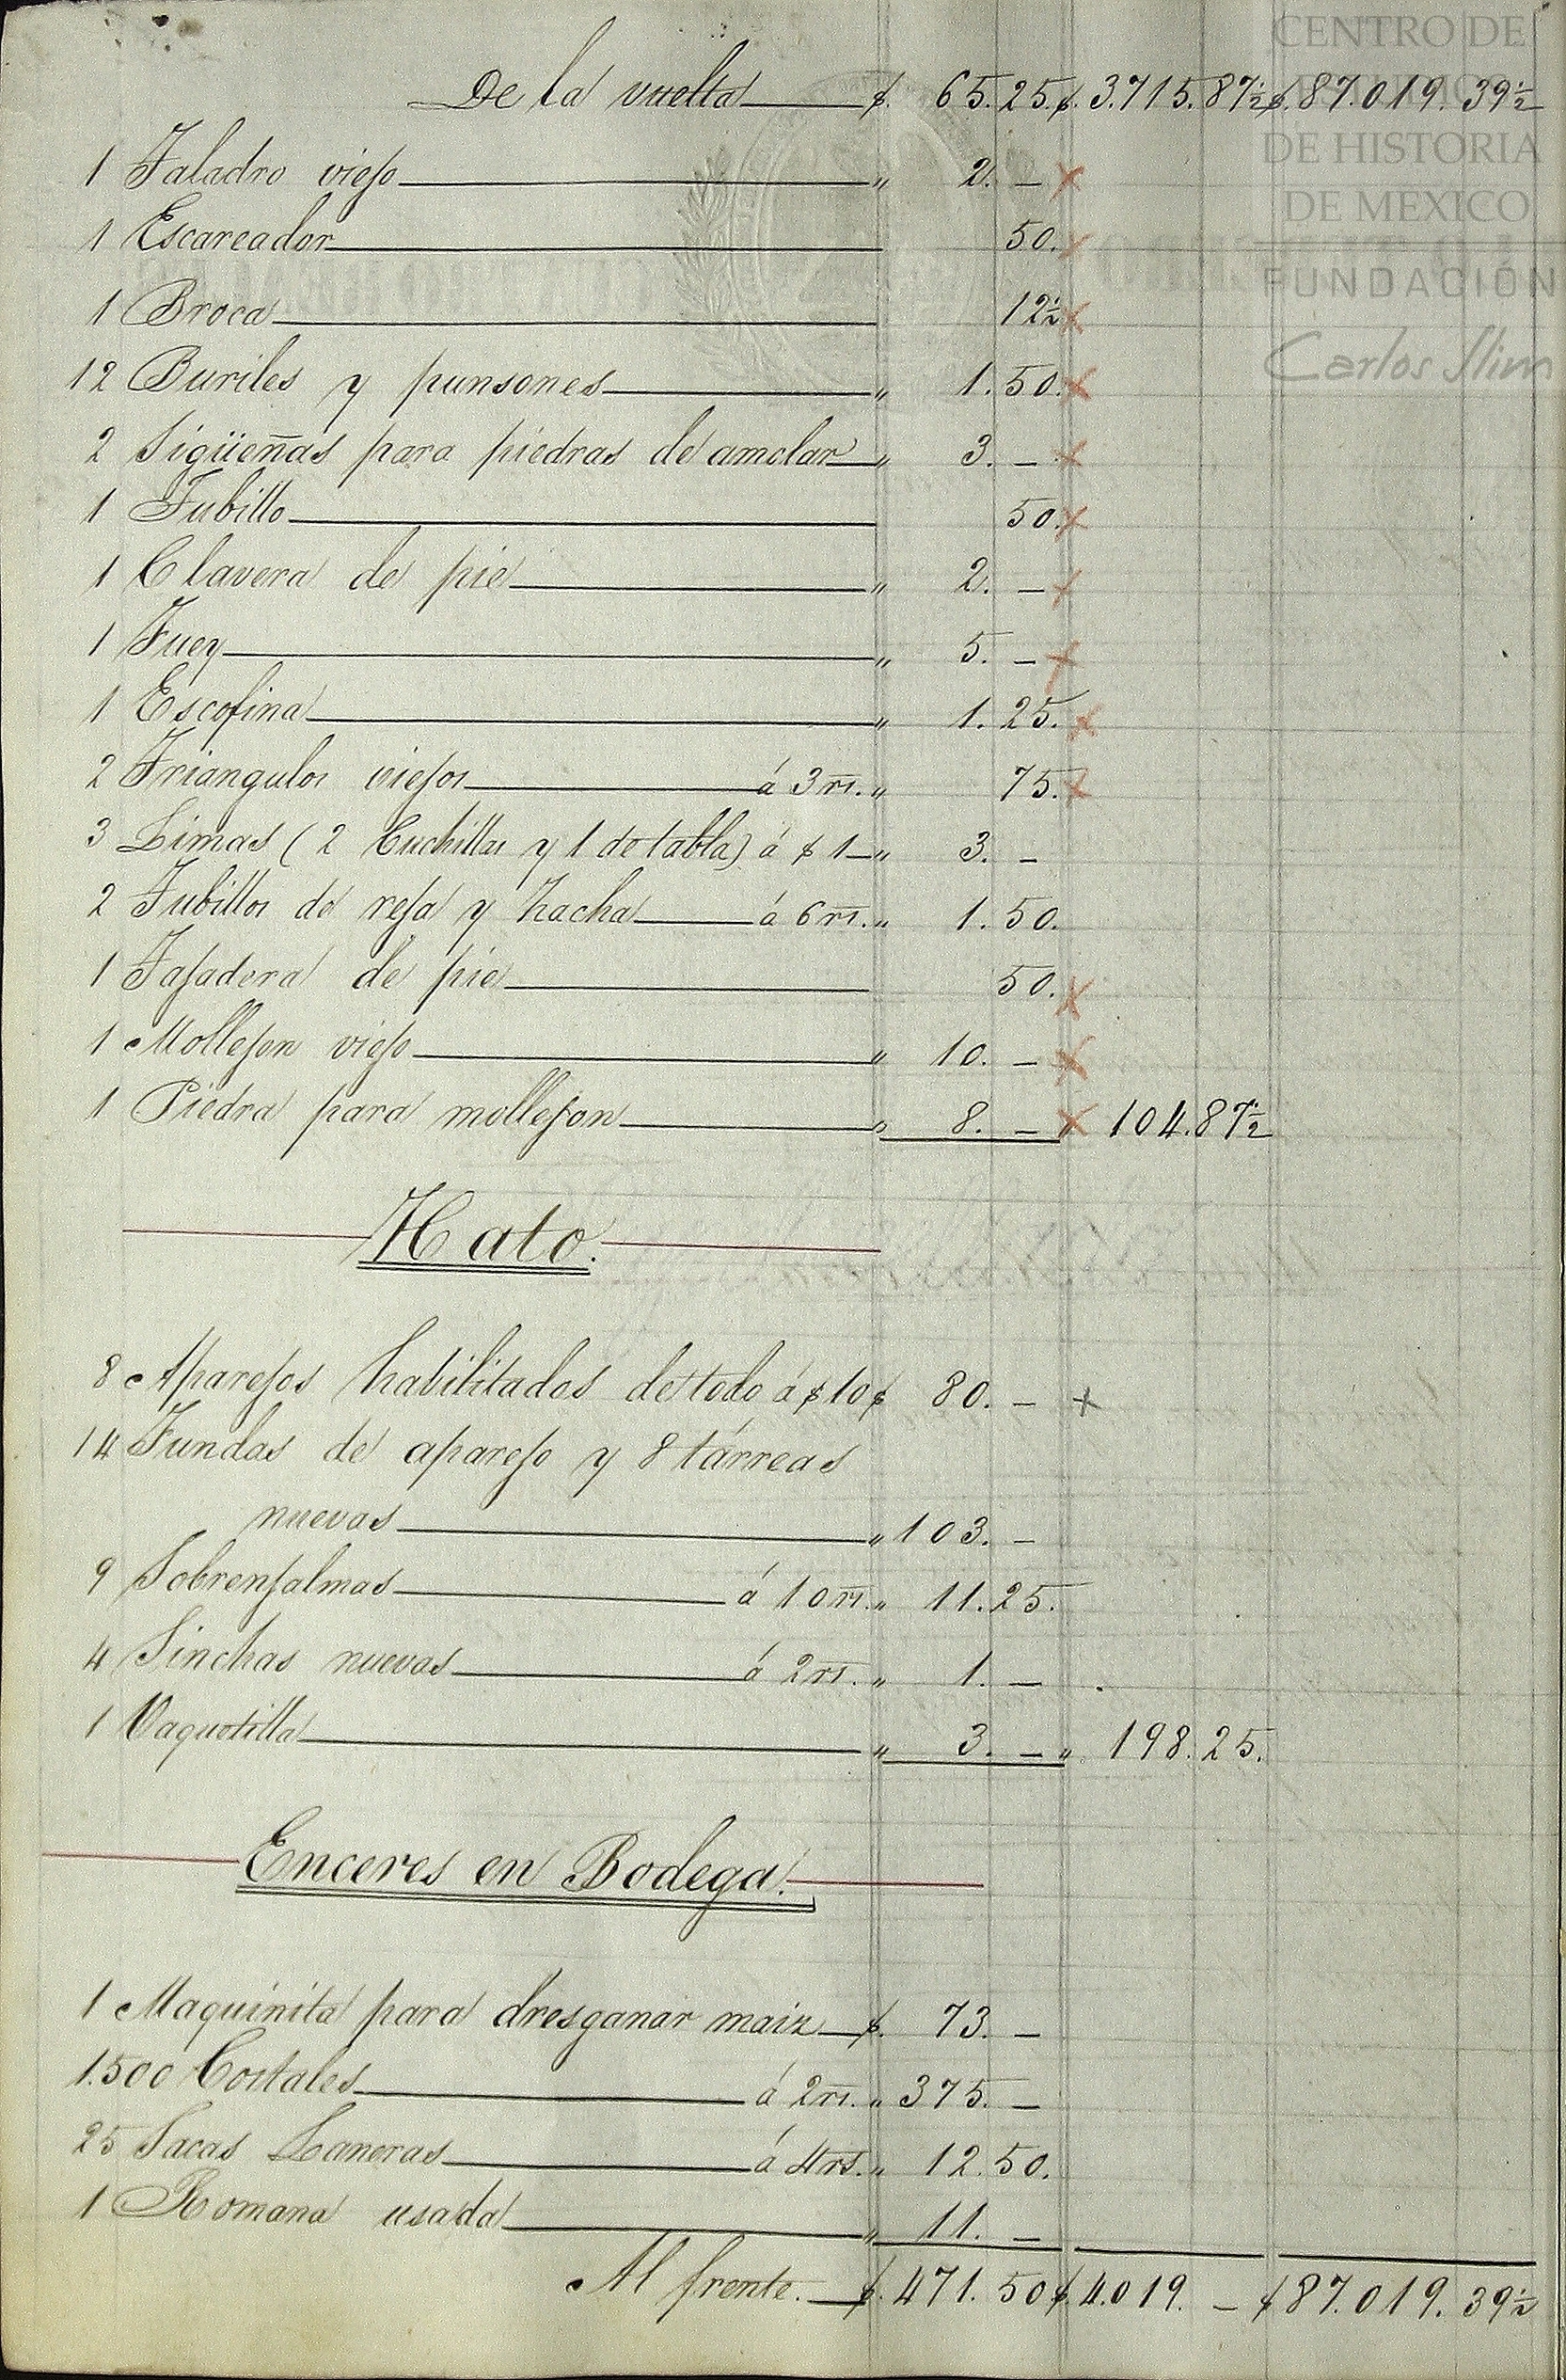 CENTRO DE
ESTUDIOS
DE HISTORIA
DE MEXICO
FUNDACIÓN
Carlos Slim
De la vuelta $. 65.25. $. 3.715.87½ $. 87.019.39½
1 Taladro viejo " 2. –
1 Escareador 50.
1 Broca 12½
12 Buriles y punsones " 1.50.
2 Sigüeñas para piedras de amolar " 3. –
1 Tubillo 50.
1 Clavera de pie " 2. –
1 Juey " 5. –
1 Escofina " 1.25.
2 Triangulos viejos á 3 rs. " 75.
3 Limas (2 Cuchillas y 1 de tabla) á $ 1 – " 3. –
2 Tubillos de reja y hacha á 6 rs. " 1.50.
1 Tajadera de pie 50.
1 Mollejon viejo " 10. –
1 Piedra para mollejon " 8. – " 104.87½
Hato.
8 Aparejos habilitados de todo á $ 10 $ 80. –
14 Fundas de aparejo y 8 tárreas
nuevas " 103. –
9 Sobrenjalmas á 10 rs. " 11.25.
4 Sinchas nuevas á 2 rs. " 1. –
1 Vaquetilla " 3. – " 198.25.
Enceres en Bodega.
1 Maquinita para dresganar maiz $. 73. –
1.500 Costales á 2 rs. " 375. –
25 Sacas Laneras á 4 rs. " 12.50.
1 Romana usada " 11. –
Al frente. $. 471.50 $. 4.019. – $ 87.019.39½